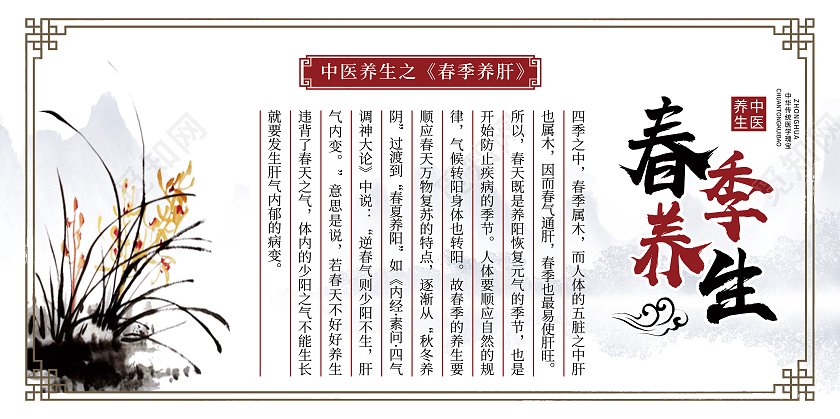 春季
养生
中医
养生
ZHONGHUA
CHUANTONGJIUBAO
中医养生之《春季养肝》
四季之中，春季属木，而人体的五脏之中肝
也属木，因而春气通肝，春季也最易使肝旺。
所以，春天既是养阳恢复元气的季节，也是
开始防止疾病的季节。人体要顺应自然的规
律，气候转阳身体也转阳。故春季的养生要
顺应春天万物复苏的特点，逐渐从“秋冬养
阴”过渡到“春夏养阳”如《内经·素问·四气
调神大论》中说：“逆春气则少阳不生，肝
气内变。”意思是说，若春天不好好养生
违背了春天之气，体内的少阳之气不能生长
就要发生肝气内郁的病变。